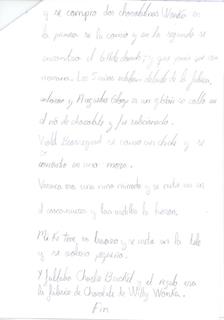 y se compro dos chocolatinas Wonka en
la primera se la comio y en la segunda se
encontro el billete dorado, y que
Los 5 niños estaban delante de la fabrica
entraron y Augustus Gloop es un gloton se callo en
el rio de chocolate y fue
Violet Beauregard se comio un chicle y se
convirtio en una mora.
Veruca era una niña mimada y se metio en un
y las ardillas la
Mike Teve es y se metio en la tele
y se volvio pequeño.
Y faltaba Charlie Bucket y el regalo era
la fabrica de Chocolate de Willy Wonka.
Fin